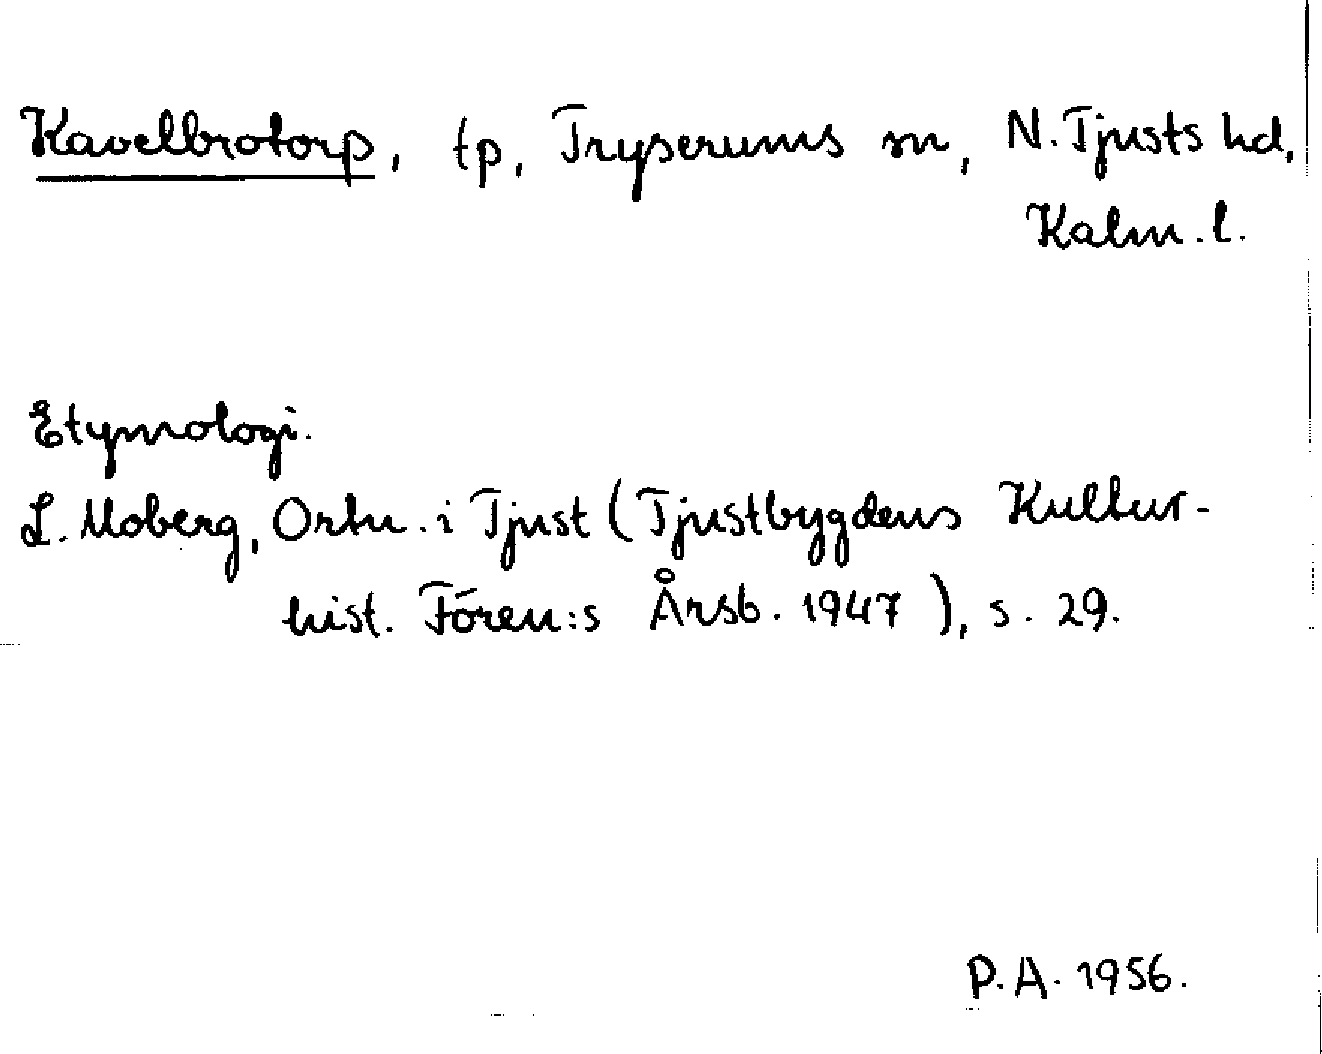 Kavelbrotorp, tp, Tryserums sn, N. Tjusts hd,
Kalm. l.
Etymologi.
L. Moberg, Ortn. i Tjust (Tjustbygdens Kultur-
hist. Fören:s Årsb. 1947), s. 29.
P. A. 1956.